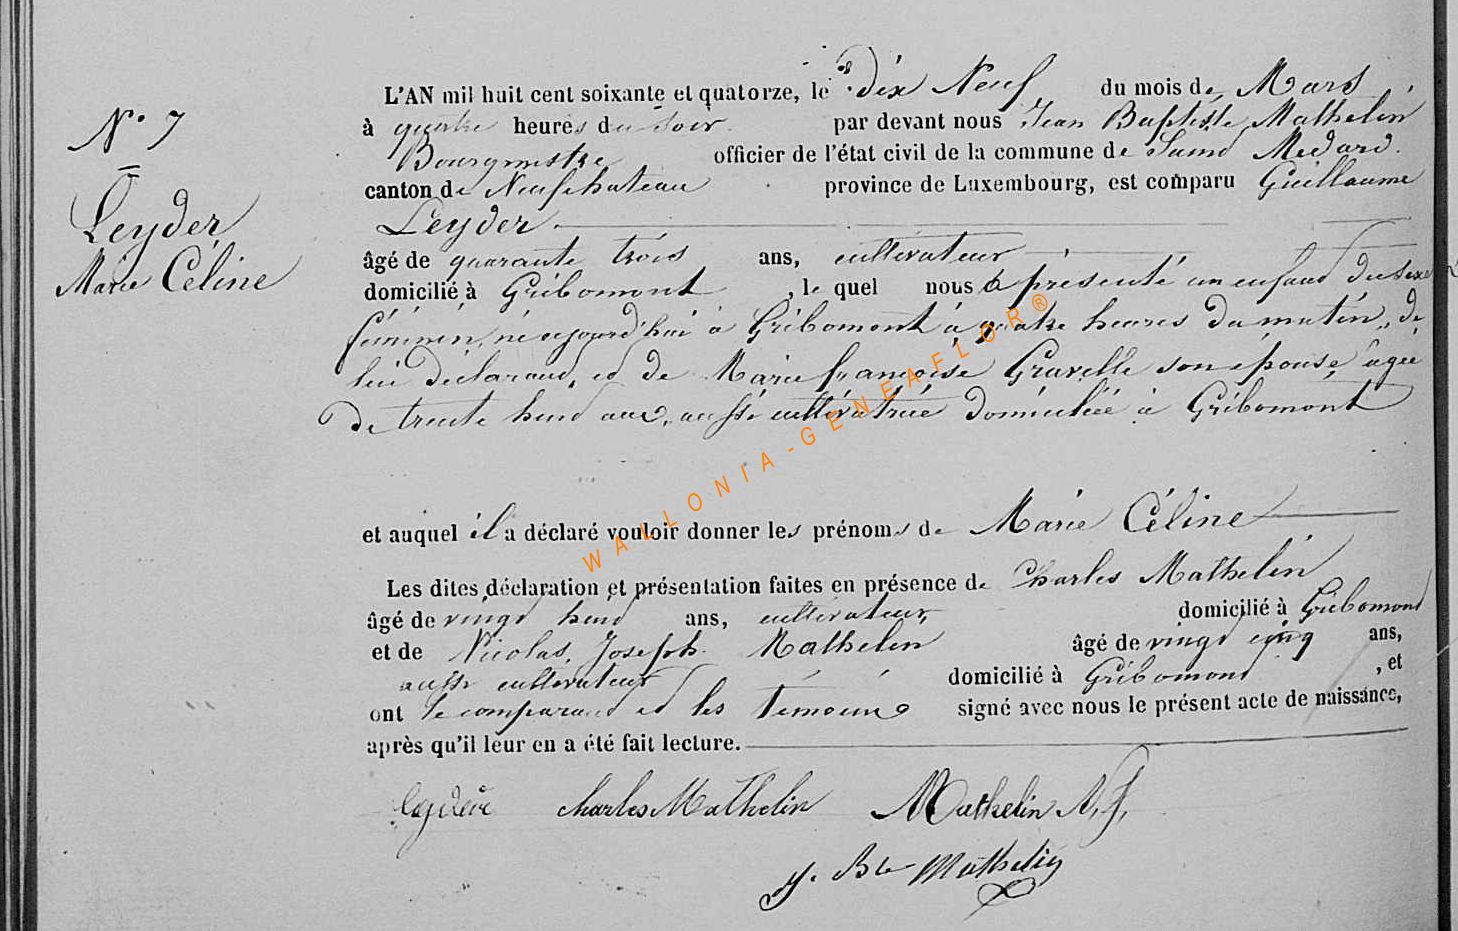 N° 7
Leyder
Marie Céline
L'AN mil huit cent soixante et quatorze, le dix Neuf du mois de Mars
à quatre heures du soir par devant nous Jean Baptiste Mathelin
Bourgmestre officier de l'état civil de la commune de Saint Médard.
canton de Neufchateau province de Luxembourg, est comparu Guillaume
Leyder
âgé de quarante trois ans, cultivateur
domicilié à Gribomont, le quel nous a présenté un enfant du sexe
féminin, né aujourd'hui à Gribomont à quatre heures du matin, de
lui déclarant, et de Marie françoise Gravelle son épouse âgée
de trente huit ans, aussi cultivatrice domiciliée à Gribomont
et auquel il a déclaré vouloir donner les prénoms de Marie Céline
Les dites déclaration et présentation faites en présence de Charles Mathelin
âgé de vingt huit ans, cultivateur, domicilié à Gribomont
et de Nicolas Joseph Mathelin âgé de vingt cinq ans,
aussi cultivateur domicilié à Gribomont, et
ont le comparant et les témoins signé avec nous le présent acte de naissance,
après qu'il leur en a été fait lecture.
Charles Mathelin Mathelin N. J.
J. Bte Mathelin
WALLONIA-GENEAFLOR®